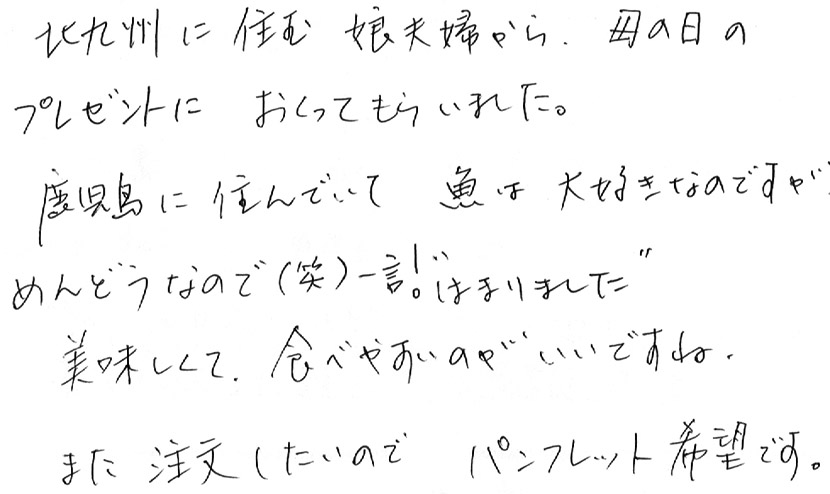 北九州に住む 娘夫婦から、母の日の
プレゼントに おくってもらいました。
鹿児島に住んでいて 魚は大好きなのですが
めんどうなので(笑)一言!"はまりました"
美味しくて、食べやすいのがいいですね。
また注文したいので パンフレット希望です。